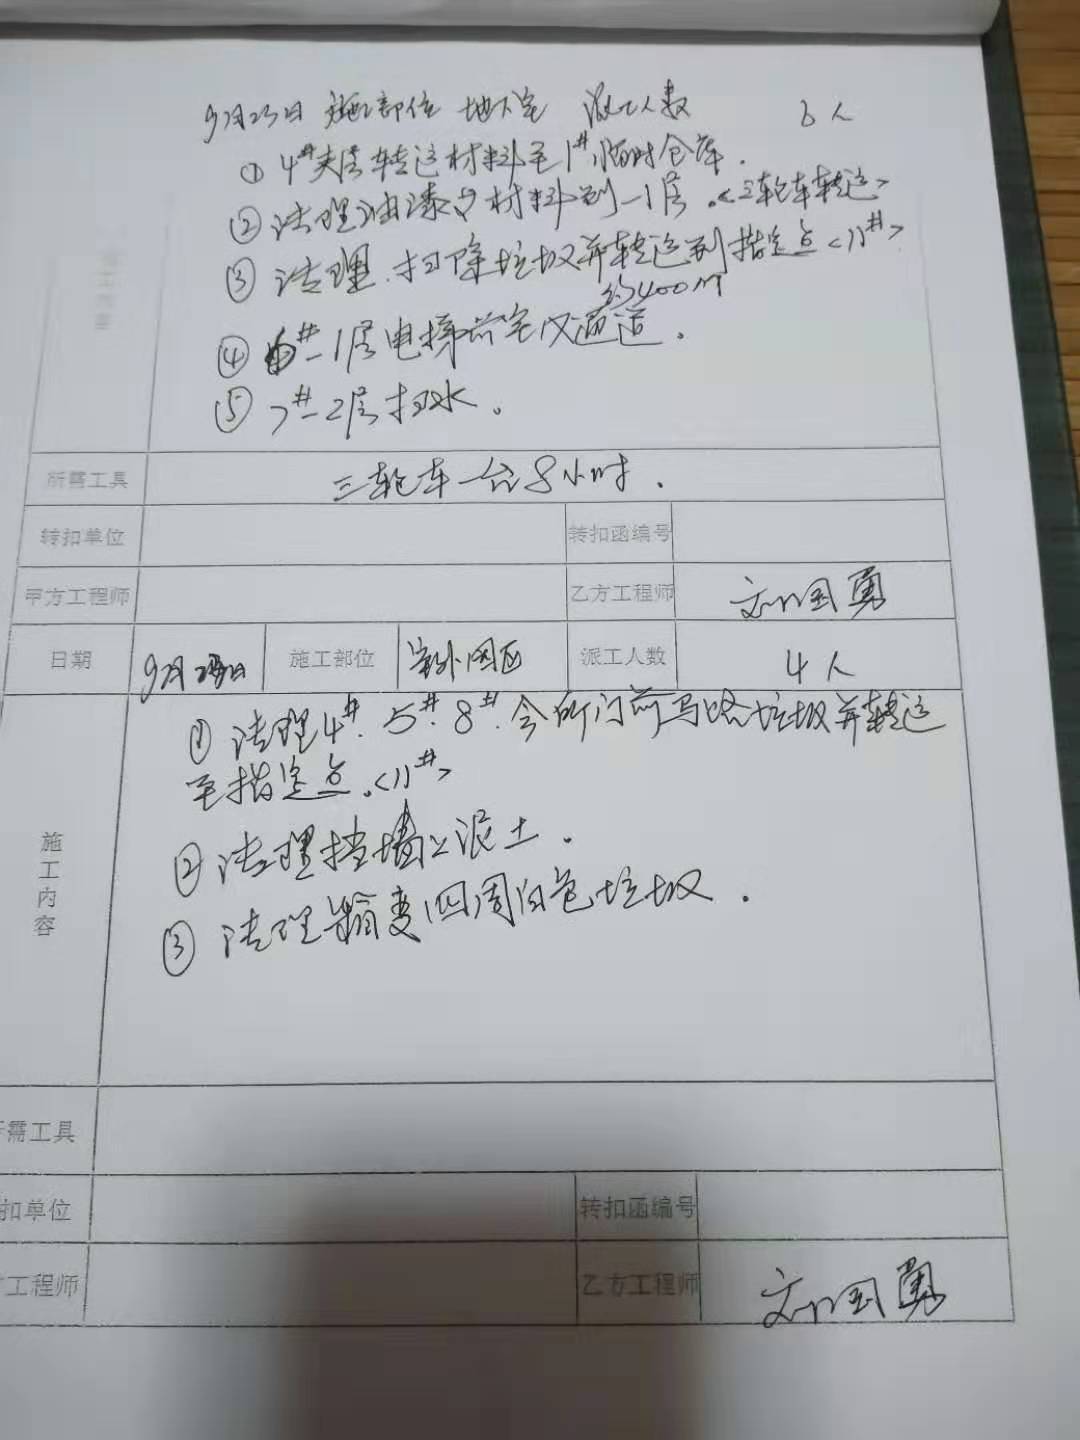 9月23日 施工部位 地下室 派工人数 6人
① 4#夹层转运材料至1#临时仓库.
② 清理油漆及材料到-1层.<三轮车转运>
③ 清理.扫除垃圾并转运到指定点<11#>.
约400M
④ 6#-1层电梯前室及通道.
⑤ 7#-2层扫水.
所需工具 三轮车一台8小时.
转扣单位 转扣函编号
甲方工程师 乙方工程师 刘国勇
日期 9月23日 施工部位 室外园区 派工人数 4人
① 清理4#.5#.8#.会所门前马路垃圾并转运
至指定点.<11#>
② 清理挡墙上泥土.
施工内容
③ 清理输变四周白色垃圾.
需工具
扣单位 转扣函编号
工程师 乙方工程师 刘国勇